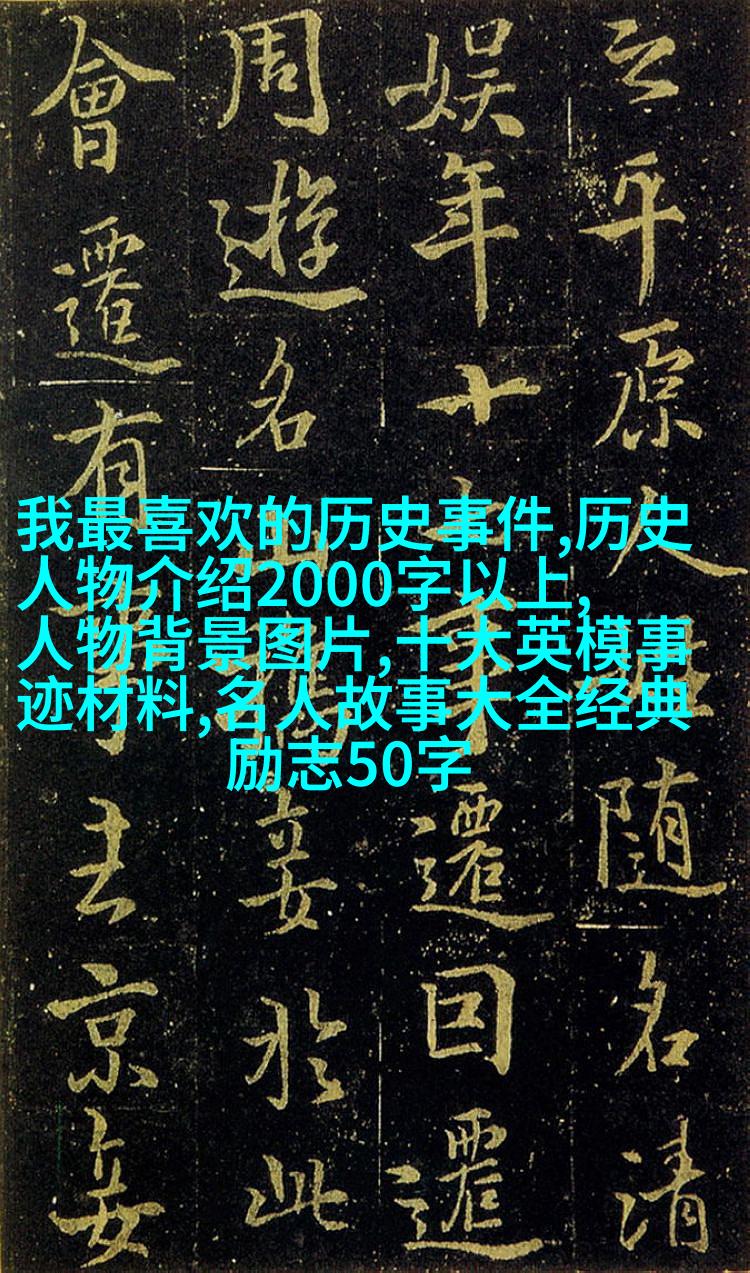 我最喜欢的历史事件,历史
人物介绍2000字以上,
人物背景图片,十大英模事
迹材料,名人故事大全经典
励志50字
之平原人随名清
娱年十遷回遷
周遊名山於此
會遷有京